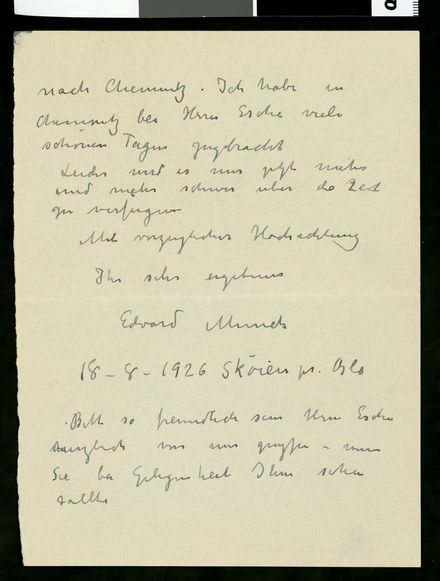 nach Chemnitz. Ich habe in
Chemnitz bei Herrn Esche viele
schönen Tagen zugebracht
Leider wird es mir jetzt mehr
und mehr schwer über die Zeit
zu verfügen
Mit vorzüglicher Hochachtung
Ihr sehr ergebener
Edvard Munch
18-8-1926 Sköien pr. Oslo
Bitte so freundlich sein Herrn Esche
von mir grüssen – wenn
Sie bei Gelegenheit Ihm sehen
sollte